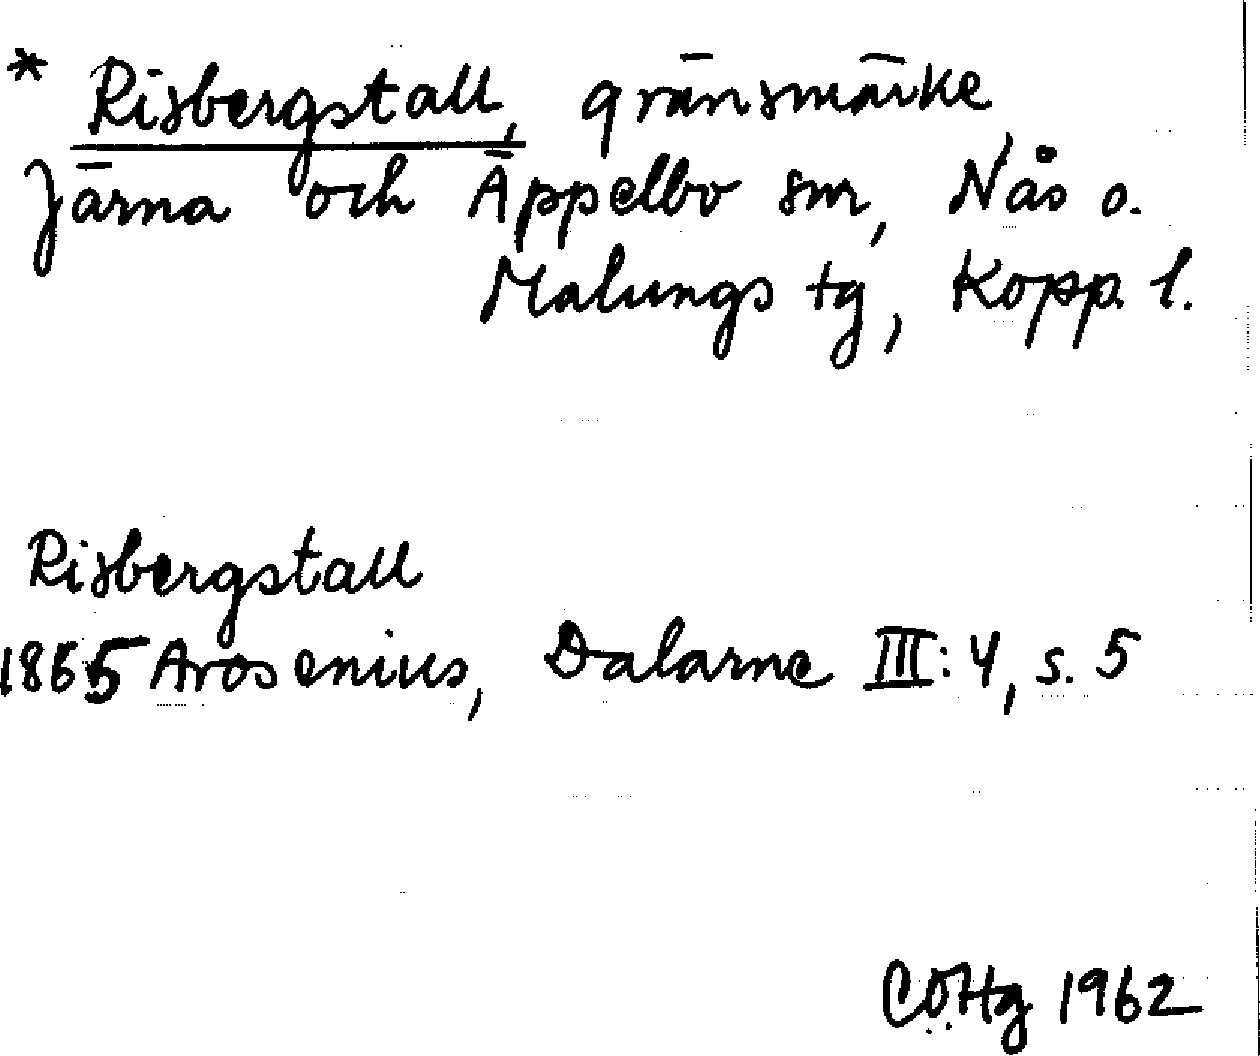 * Risbergstall, gränsmärke
Järna och Äppelbo snr, Nås o.
Malungs tg, Kopp. l.
Risbergstall
1865 Arosenius, Dalarne III: 4, s. 5
COHg 1962